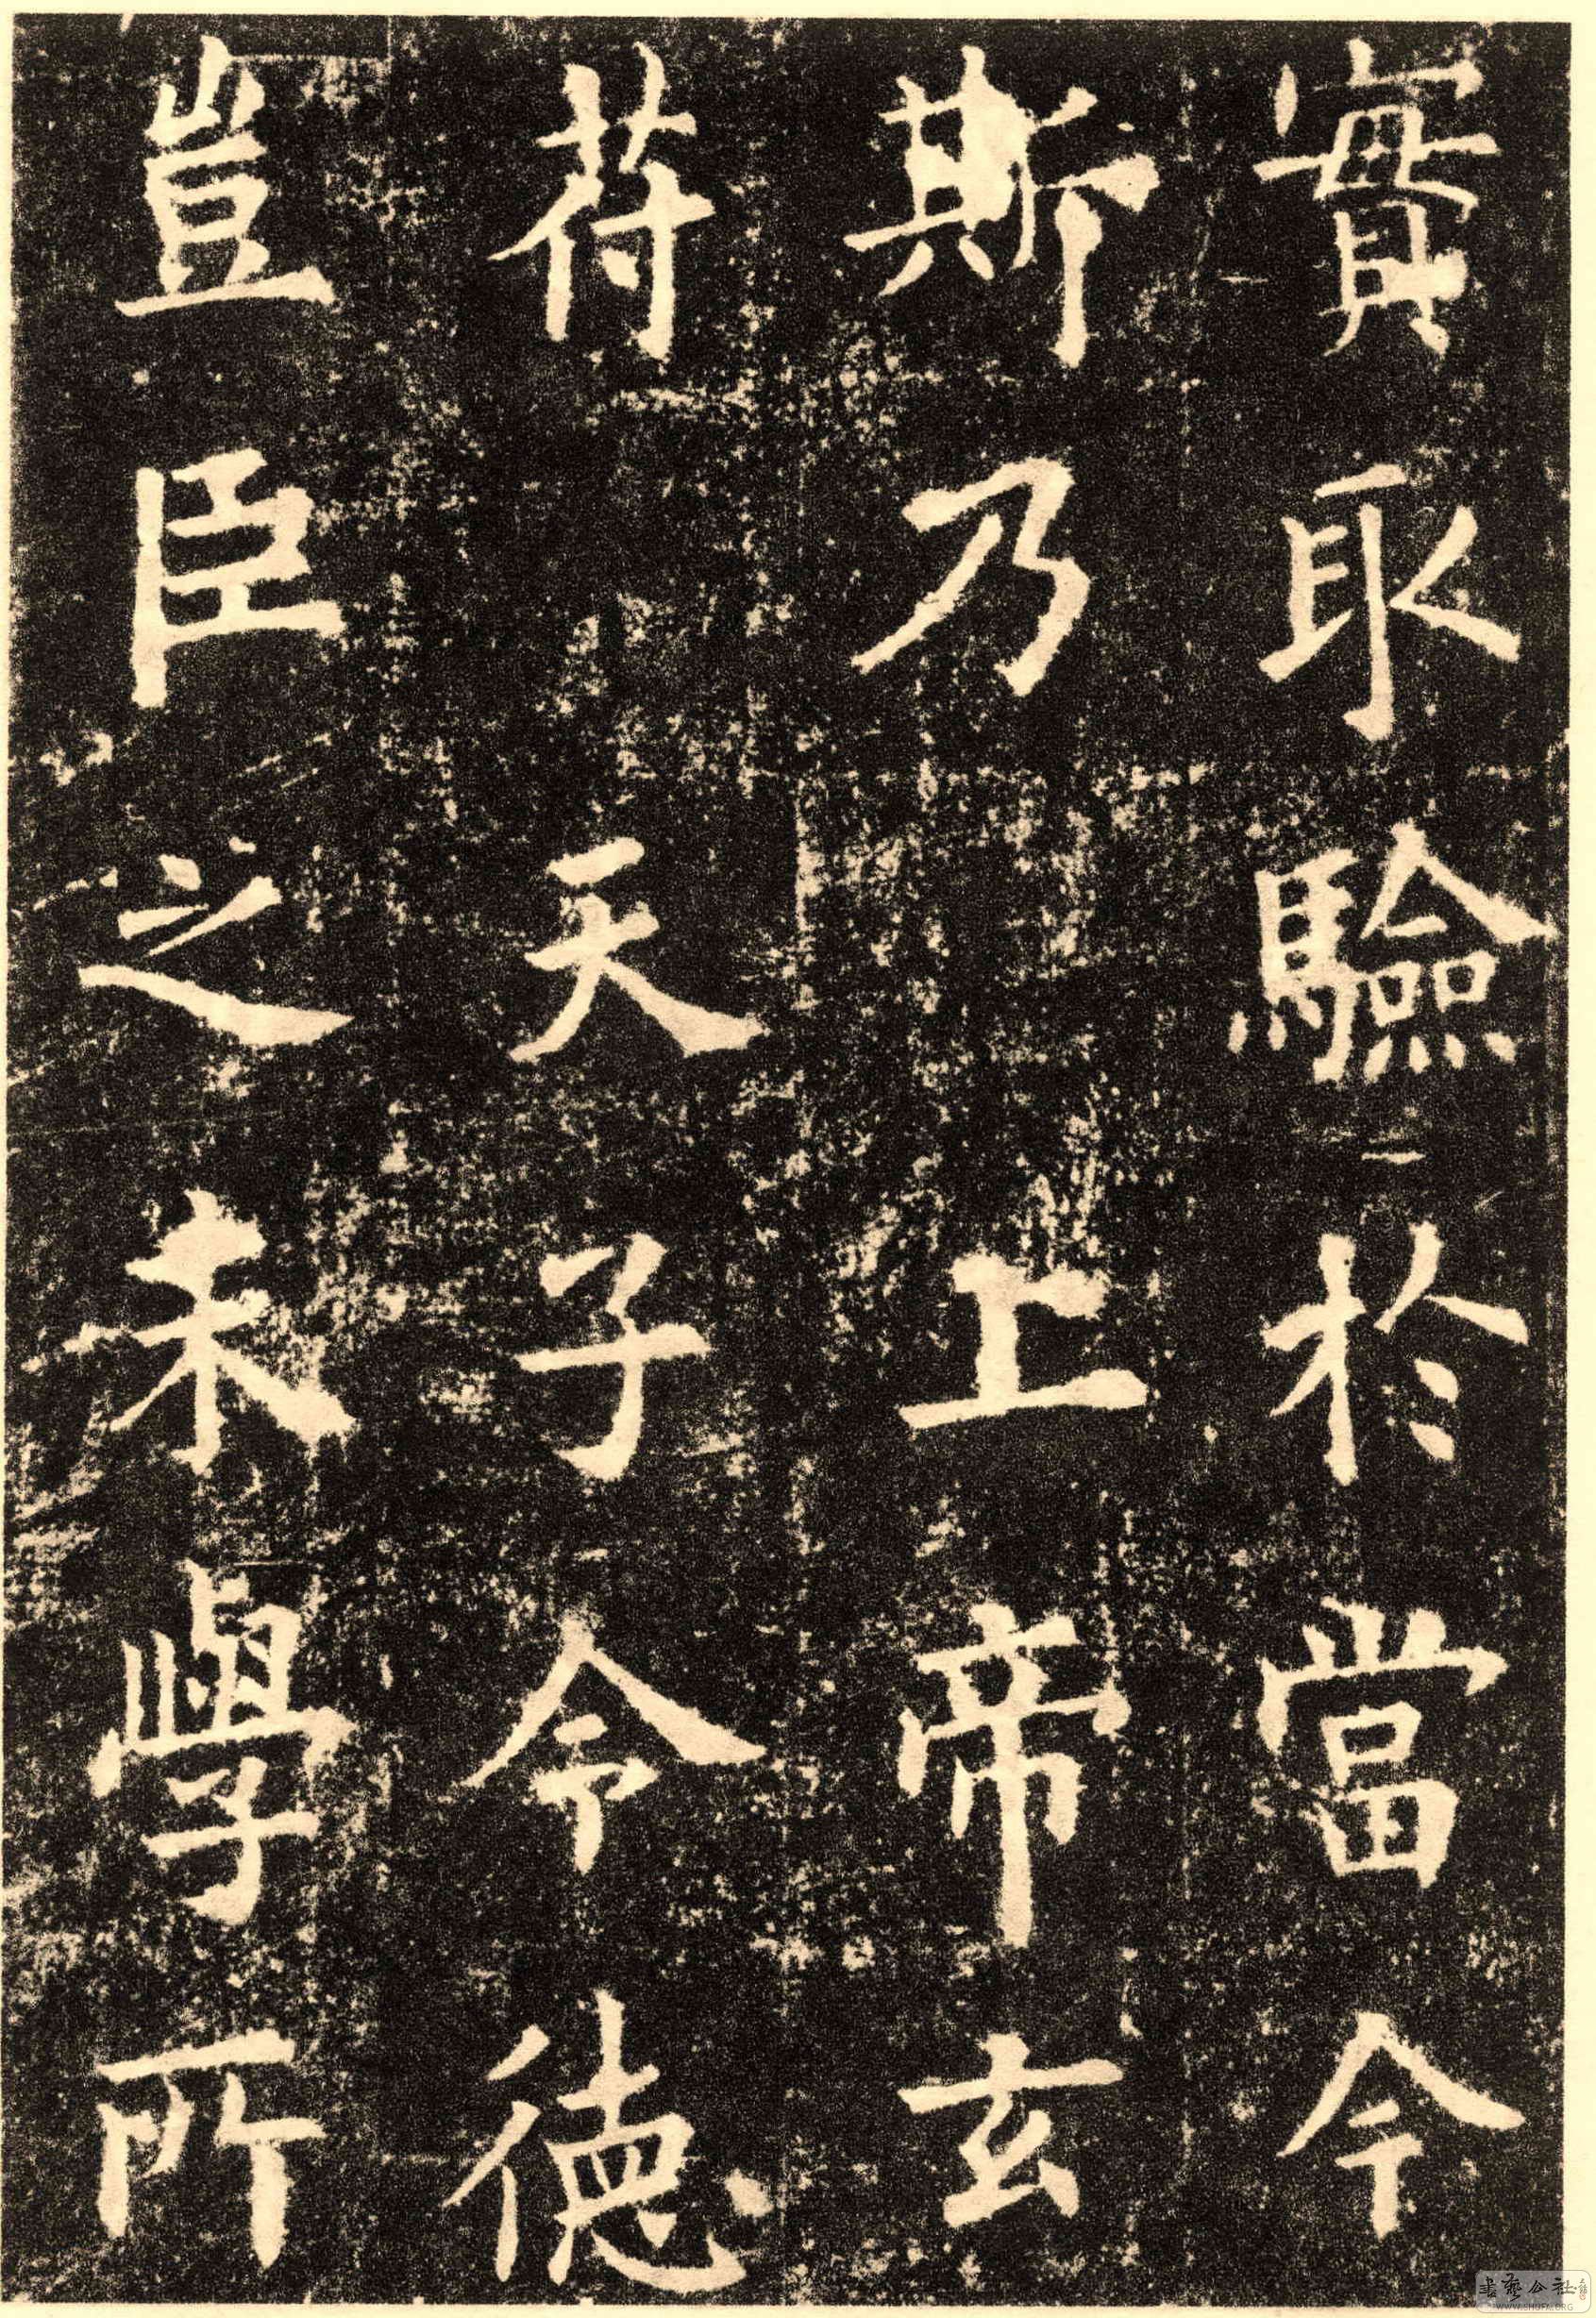 實取驗於當今
斯乃上帝玄
苻天子令德
豈臣之末學所
書藝公社
WWW.SHUFA.ORG